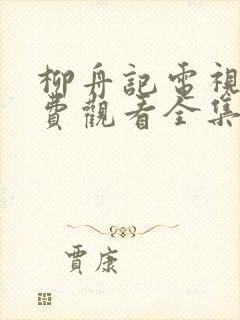 柳舟記電視
費觀看全集
賈康